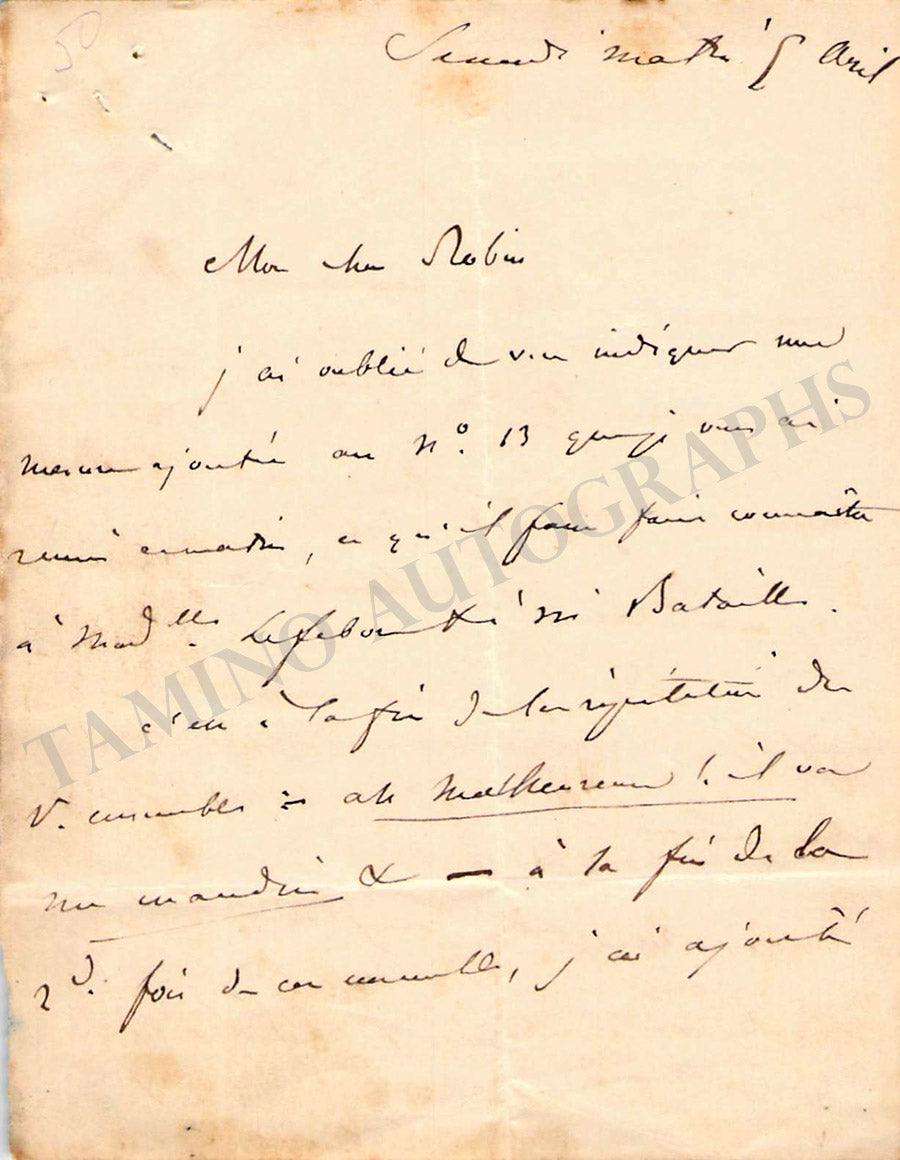 50
Samedi matin 5 Avril
Mon cher Robin
j'ai oublié de vous indiquer une
mesure ajoutée au No. 13 que je vous ai
remis ce matin, et qu'il faut faire connaître
à Madelle. Lefebvre & à Mr Bataille.
c'est à la fin de la répétition du
V. ensemble = ah malheureux ! il va
me maudire & — à la fin de la
2d. fois de cet ensemble, j'ai ajouté
TAMINO AUTOGRAPHS